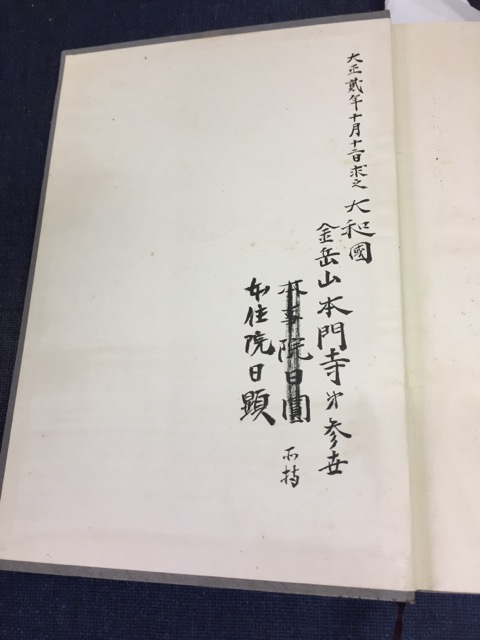 大正貳年十月十二日求之 大和國
金岳山本門寺㐧参世
院日圓
本住院日顕
所持